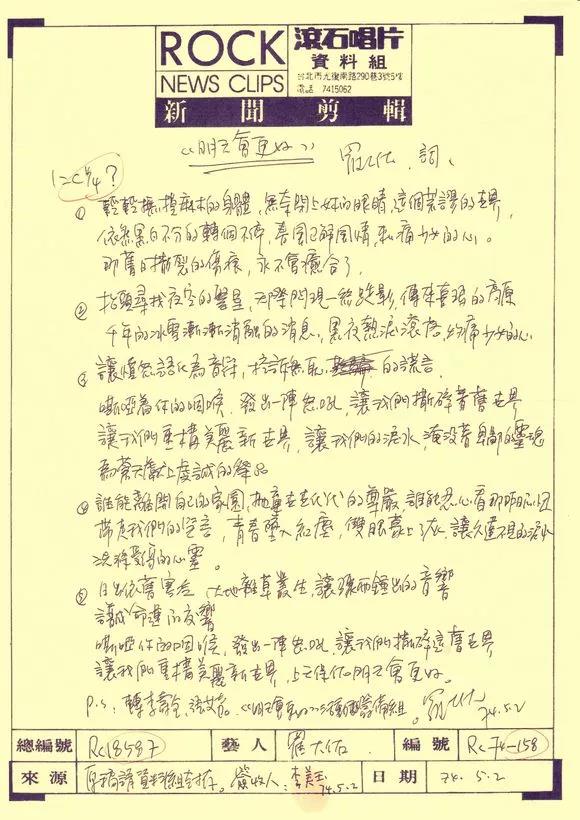 ROCK
NEWS CLIPS
滾石唱片
資料組
台北市光復南路290巷3號5樓
電話 7415062
新聞剪輯
《明天會更好》 羅大佑 詞、
1=C 4/4 ?
① 輕輕搖撞麻木的身體，無奈閉上妳的眼睛，這個荒謬的世界，
依然黑白不分的轉個不停，春風已解風情，刺痛少女的心。
那舊日撕裂的傷痕，永不會癒合了，
② 抬頭尋找夜空的彗星，天際閃現一絲蹤影，傳來喜瑪的高原
千年的冰雪漸漸消融的消息，黑夜熱淚滾落，灼痛少女的心
③ 讓憤怒話化為音符，控訴無恥 的謊言，
嘶啞著你的咽喉，發出一陣怒吼，讓我們撕碎舊世界
讓我們重構美麗新世界，讓我們的淚水，淹沒着卑鄙的靈魂
為蒼天獻上虔誠的祭品
④ 誰能離開自己的家園，拋棄世世代代的尊嚴，誰能忍心看那昨日
帶走我們的 言，青春墜入紅塵，雙眼蒙上 ，讓久違不見的淚水
洗滌受傷的心靈。
⑤ 日出依舊寒冷 大地雜草叢生，讓 出的音響
譜成命運的交響
嘶啞你的咽喉，發出一陣怒吼，讓我們撕碎這舊世界
讓我們重構美麗新世界，上天保佑明天會更好。
P.S.：轉李壽全、張艾嘉。《明天會更好》 籌備組。羅大佑 74.5.2
總編號 Rc18587 藝人 羅大佑. 編號 Rc74-158
來源 原稿請資料組存. 簽收人：李美玉 74.5.2 日期 74.5.2